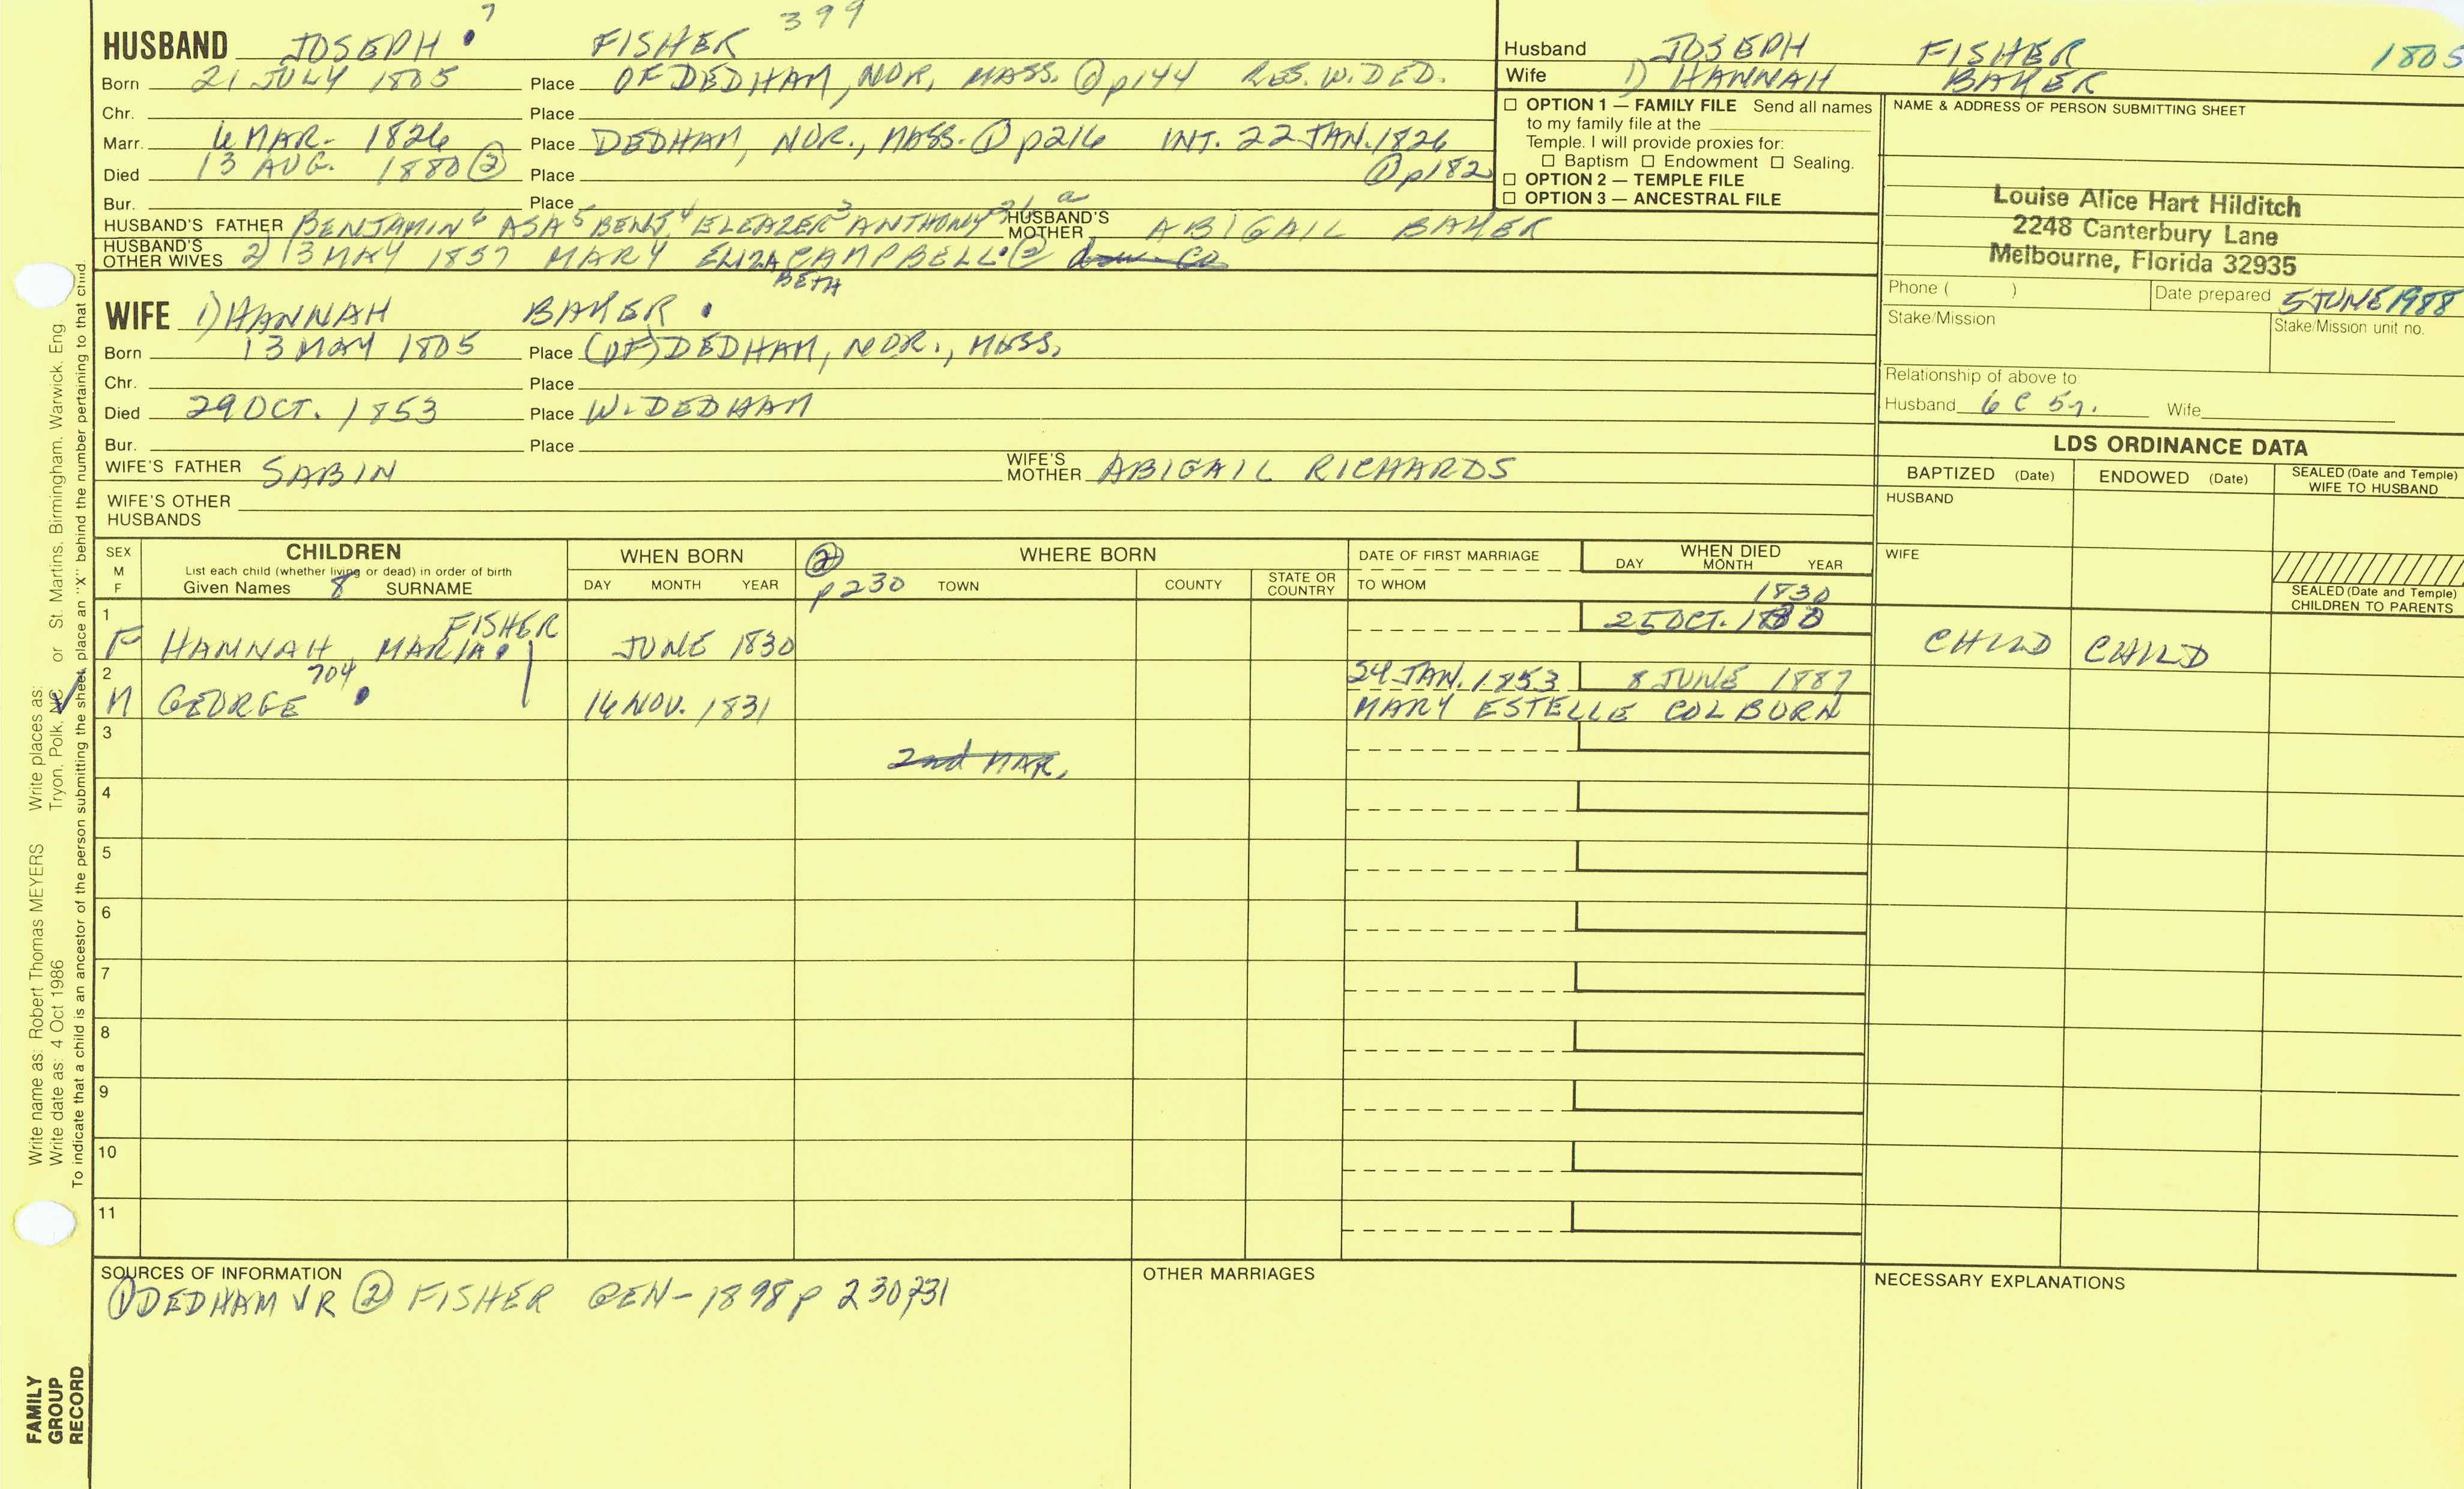 7
399
HUSBAND JOSEPH FISHER
Born 21 JULY 1805 Place OF DEDHAM, NOR, MASS. ① p144 RES. W. DED.
Chr. Place
Marr. 6 MAR. 1826 Place DEDHAM, NOR., MASS. ① p216 INT. 22 JAN. 1826
Died 13 AUG. 1880 ② Place ① p182
Bur. Place
HUSBAND'S FATHER BENJAMIN 6 ASA 5 BENJ. 4 ELEAZER 3 ANTHONY HUSBAND'S MOTHER ABIGAIL BAKER
HUSBAND'S OTHER WIVES 2) 13 MAY 1857 MARY ELIZA CAMPBELL ②
BETH
WIFE 1) HANNAH BAKER
Born 13 MAY 1805 Place (OF) DEDHAM, NOR., MASS.
Chr. Place
Died 29 OCT. 1853 Place W. DEDHAM
Bur. Place
WIFE'S FATHER SABIN WIFE'S MOTHER ABIGAIL RICHARDS
WIFE'S OTHER
HUSBANDS
Husband JOSEPH FISHER 1805
Wife 1) HANNAH BAKER
☐ OPTION 1 — FAMILY FILE Send all names
to my family file at the
Temple. I will provide proxies for:
☐ Baptism ☐ Endowment ☐ Sealing.
☐ OPTION 2 — TEMPLE FILE
☐ OPTION 3 — ANCESTRAL FILE
NAME & ADDRESS OF PERSON SUBMITTING SHEET
Louise Alice Hart Hilditch
2248 Canterbury Lane
Melbourne, Florida 32935
Phone ( ) Date prepared 5 JUNE 1988
Stake/Mission Stake/Mission unit no.
Relationship of above to
Husband 6 C 5 r. Wife
LDS ORDINANCE DATA
BAPTIZED (Date) ENDOWED (Date) SEALED (Date and Temple) WIFE TO HUSBAND
HUSBAND
WIFE
SEALED (Date and Temple)
CHILDREN TO PARENTS
SEX M F
CHILDREN
List each child (whether living or dead) in order of birth
Given Names 8 SURNAME
WHEN BORN
DAY MONTH YEAR
② p230
WHERE BORN
TOWN COUNTY STATE OR COUNTRY
DATE OF FIRST MARRIAGE
TO WHOM
WHEN DIED
DAY MONTH YEAR
1830
1 FISHER 25 OCT.
F HANNAH MARIA JUNE 1830 CHILD CHILD
2 704 24 JAN. 1853 8 JUNE 1887
M GEORGE 16 NOV. 1831 MARY ESTELLE COLBURN
3
2nd MAR.
4
5
6
7
8
9
10
11
SOURCES OF INFORMATION
① DEDHAM VR ② FISHER GEN-1898 p 230,231
OTHER MARRIAGES
NECESSARY EXPLANATIONS
Write name as: Robert Thomas MEYERS Write places as:
Write date as: 4 Oct 1986 Tryon, Polk, NC or St. Martins, Birmingham, Warwick, Eng.
To indicate that a child is an ancestor of the person submitting the sheet, place an "X" behind the number pertaining to that child.
FAMILY
GROUP
RECORD